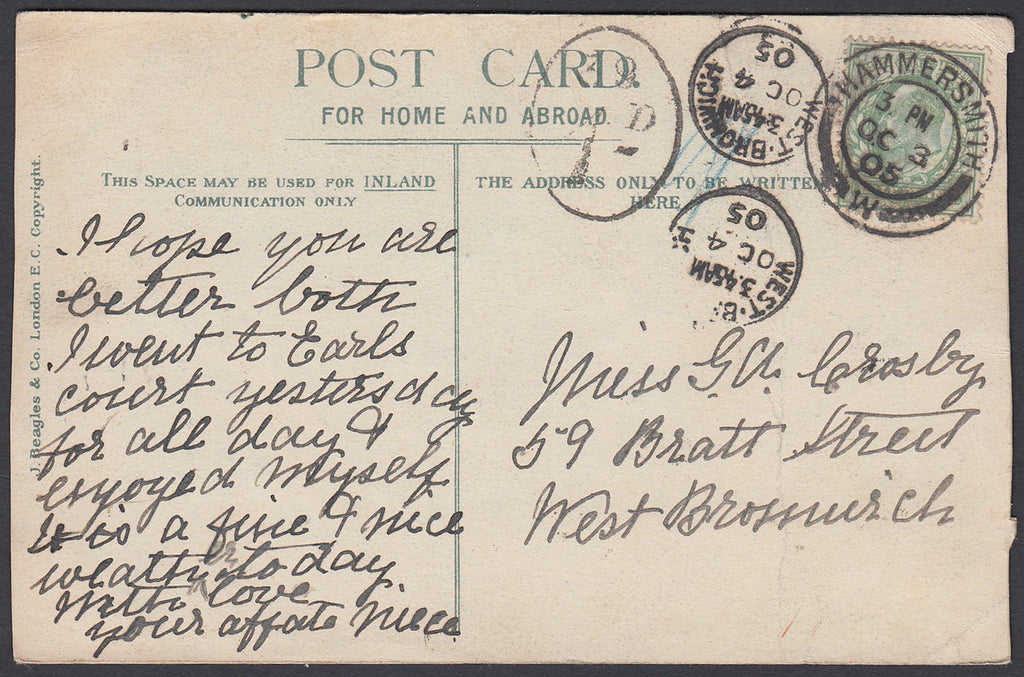 POST CARD.
FOR HOME AND ABROAD.
THIS SPACE MAY BE USED FOR INLAND
COMMUNICATION ONLY
THE ADDRESS ONLY TO BE WRITTEN
HERE
J. Beagles & Co. London E.C. Copyright.
I hope you are
better both
I went to Earls
court yestersday
for all day &
enjoyed myself
It is a fine & nice
weather today
With love
your affate niece
Miss G.A. Crosby
59 Bratt Street
West Bromwich
D
WEST BROMWICH
3.45AM
OC 4
05
WEST B
H
3.45AM
OC 4
05
HAMMERSMITH
3 PM
OC 3
05
W